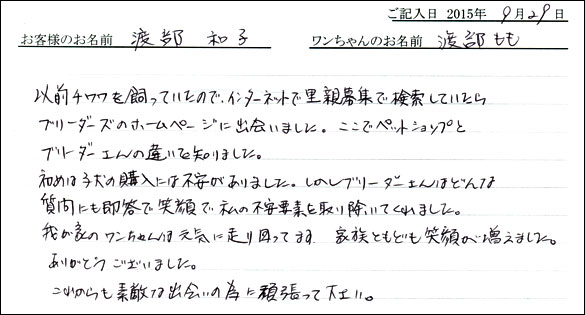 ご記入日 2015年 9月29日
お客様のお名前 渡部 和子 ワンちゃんのお名前 渡部もも
以前チワワを飼っていたので、インターネットで里親募集で検索していたら
ブリーダーズのホームページに出会いました。ここでペットショップと
ブリーダーさんの違いを知りました。
初めは子犬の購入には不安がありました。しかしブリーダーさんはどんな
質問にも即答で笑顔で私の不安要素を取り除いてくれました。
我が家のワンちゃんは元気に走り回ってます 家族ともども笑顔が増えました。
ありがとうございました。
これからも素敵な出会いの為に頑張って下さい。